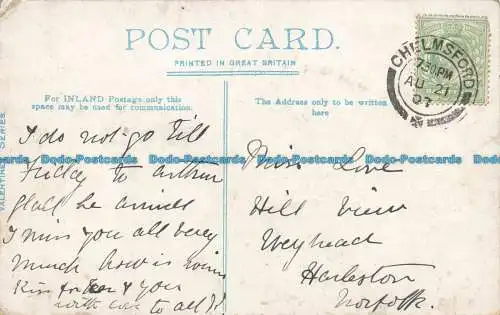 POST CARD.
PRINTED IN GREAT BRITAIN
For INLAND Postage only this
space may be used for communication.
The Address only to be written
here
VALENTINE'S SERIES
CHELMSFORD
7.30 PM
AU 21
07
Dodo-Postcards Dodo-Postcards Dodo-Postcards Dodo-Postcards Dodo-Postcards
I do not go till
Friday to Arthur
glad he arrived
I miss you all very
much how is
Kiss for & you
with love to all
Miss Love
Hill View
Weyhead
Harleston
Norfolk.